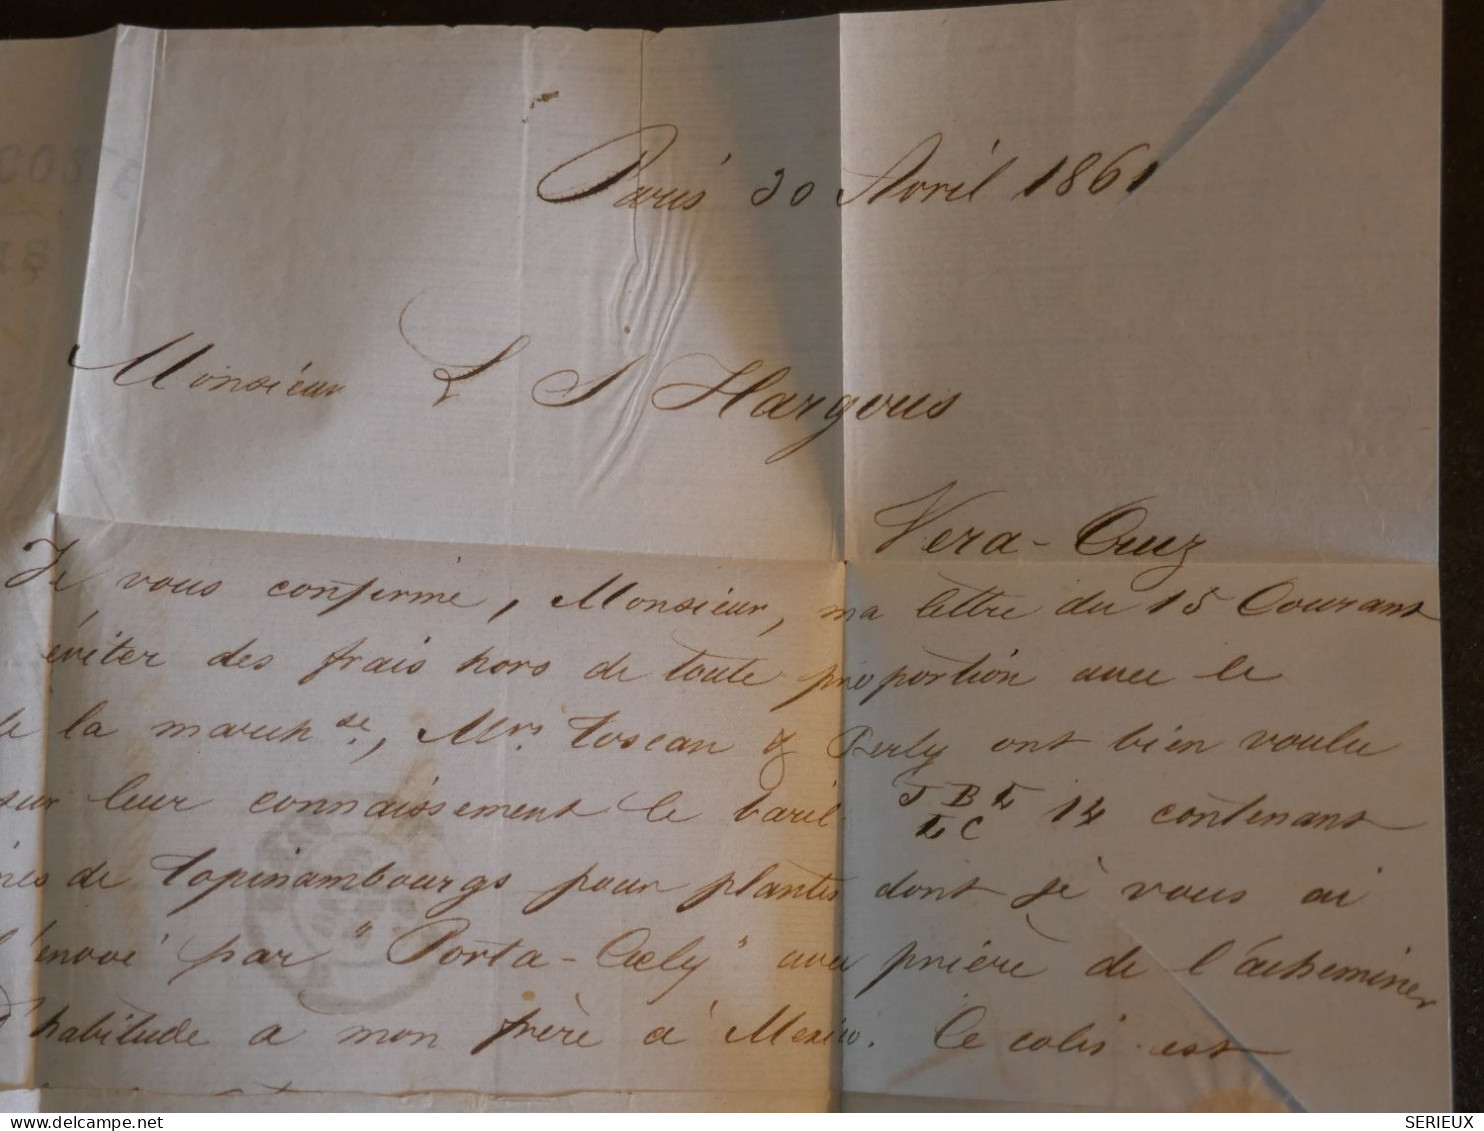 Paris 30 Avril 1861
Monsieur L S Hargous
Vera-Cruz
Je vous confirme, Monsieur, ma lettre du 15 Courant
éviter des frais hors de toute proportion avec le
de la march.se, Mrs. Toscan & Berly ont bien voulu
sur leur connaissement le baril JBL LC 14 contenant
de topinambourgs pour plantes dont je vous ai
l'envoi par "Porta-Coely" avec prière de l'acheminer
d'habitude a mon frère à Mexico. Ce colis est
SERIEUX